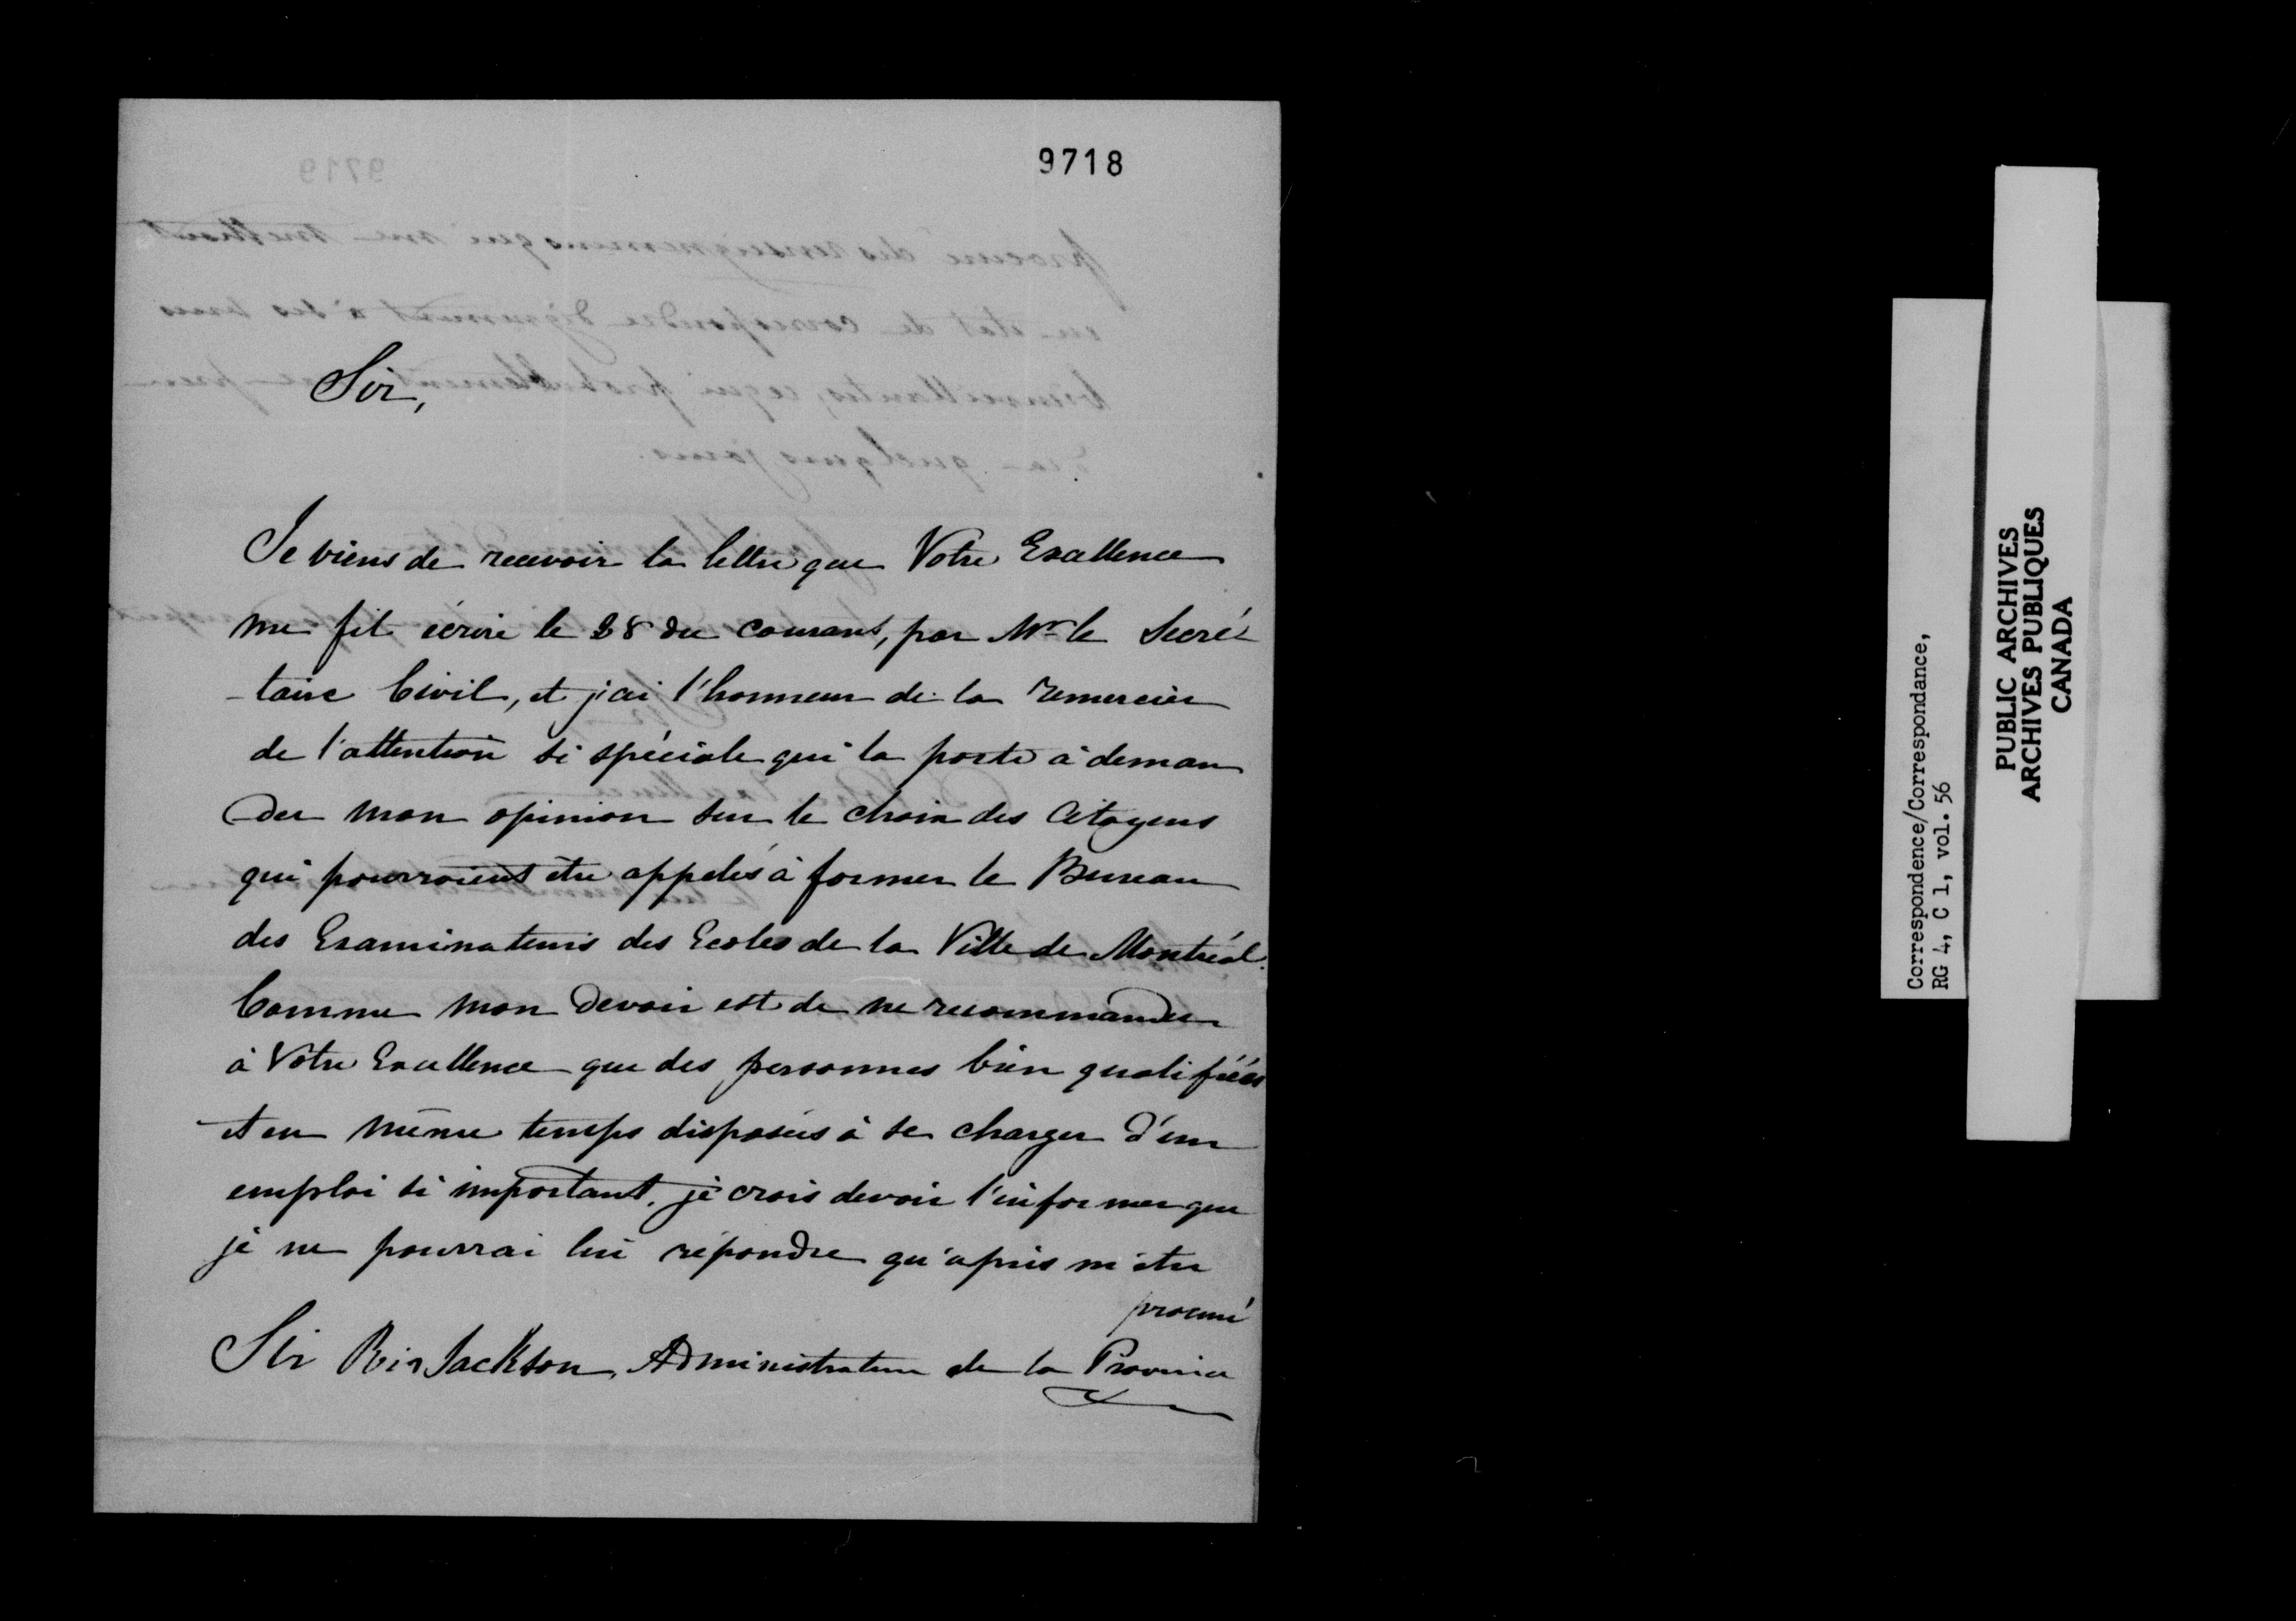 9718
Sir,
Je viens de recevoir la lettre que Votre Excellence
me fit écrire le 28 du courant, par Mr le Secré-
-taire Civil, et j'ai l'honneur de la remercier
de l'attention si spéciale qui la porte à deman
der mon opinion sur le choix des Citoyens
qui pourroient être appelés à former le Bureau
des Examinateurs des Ecoles de la Ville de Montréal.
Comme mon devoir est de ne recommander
à Votre Excellence que des personnes bien qualifiées
et en même temps disposées à se charger d'un
emploi si important, je crois devoir l'informer que
je ne pourrai lui répondre qu'après m'être
procuré
Sir Rir Jackson, Administrateur de la Province
Correspondence/Correspondance,
RG 4, C 1, vol. 56
PUBLIC ARCHIVES
ARCHIVES PUBLIQUES
CANADA